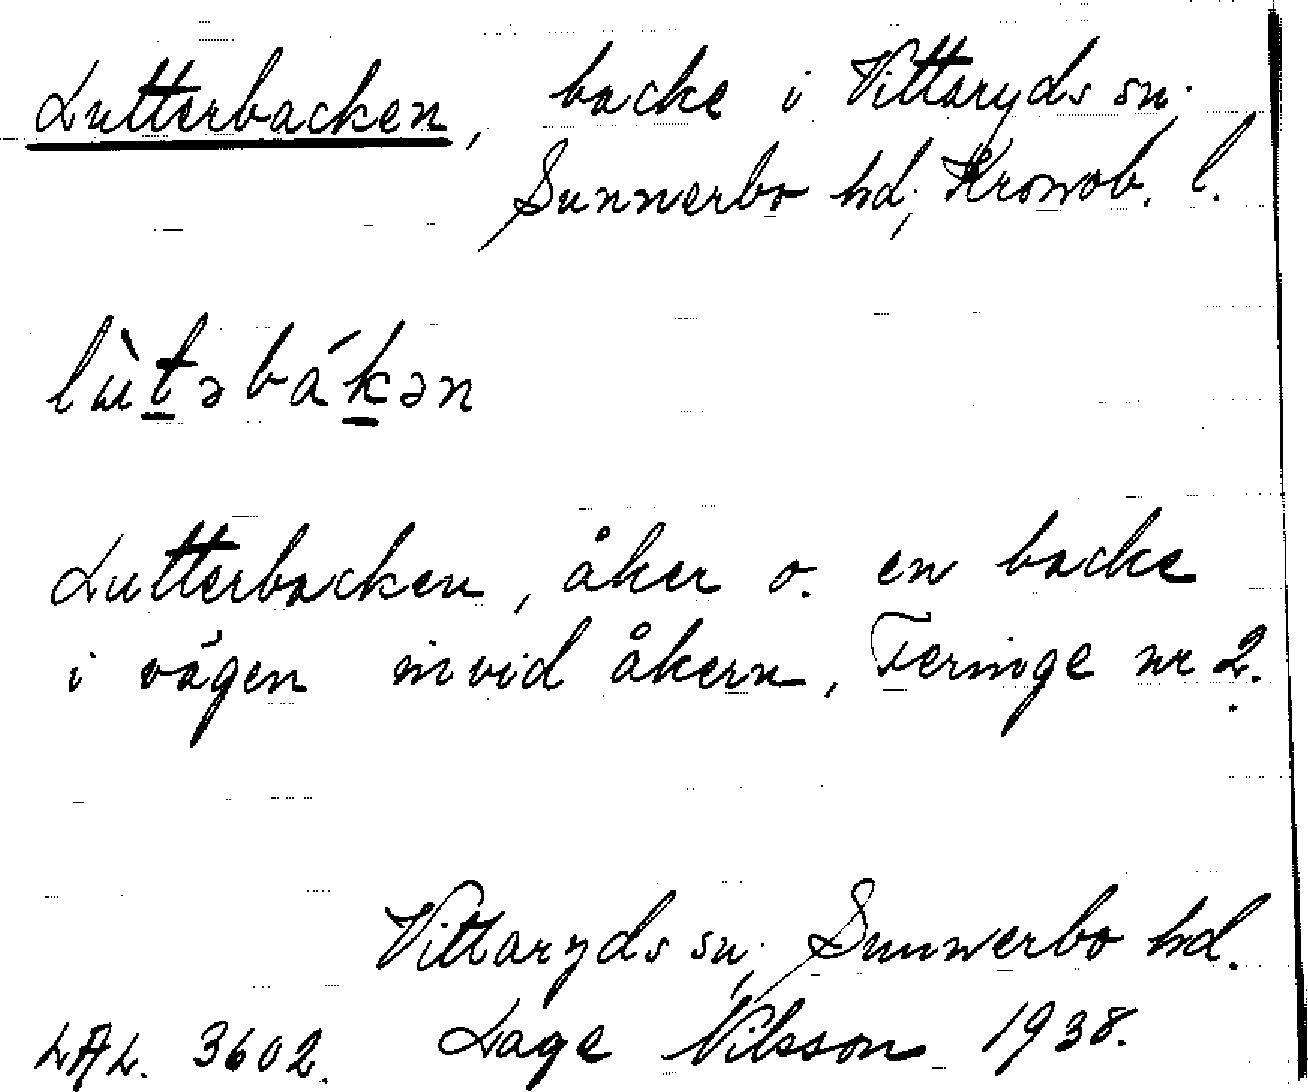 Lutterbacken, backe i Vittaryds sn.
Sunnerbo hd, Kronob. l.
lɯ̀t̲əbák̲ən
Lutterbacken, åker o. en backe
i vägen invid åkern, Feringe nr 2.
Vittaryds sn, Sunnerbo hd.
LAL. 3602. Lage Nilsson 1938.